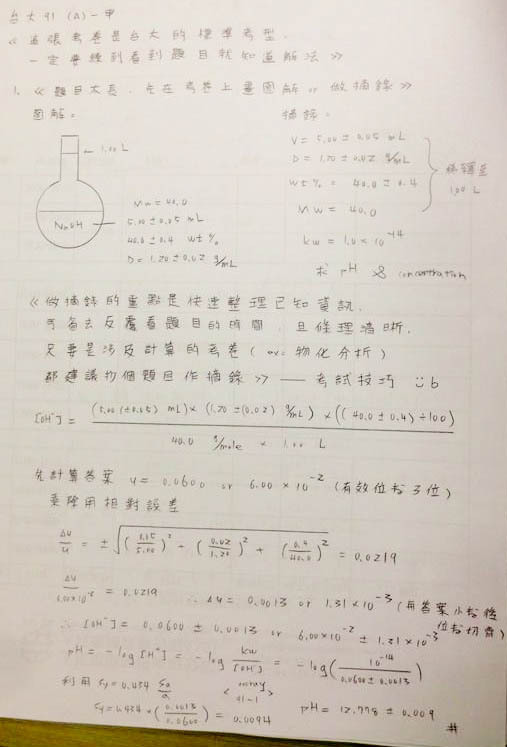 台大 91 (A) - 甲
《這張考卷是台大的標準考型,
一定要練到看到題目就知道解法》
1. 《題目太長, 先在考卷上畫圖解 or 做摘錄》
圖解:
摘錄:
1.00 L
NaOH
Mw = 40.0
5.00 ± 0.05 mL
40.0 ± 0.4 wt %
D = 1.20 ± 0.02 g/mL
V = 5.00 ± 0.05 mL
D = 1.20 ± 0.02 g/mL
wt % = 40.0 ± 0.4
Mw = 40.0
稀釋至
1.00 L
kw = 1.0 × 10^-14
求 pH & concentration
《做摘錄的重點是快速整理已知資訊,
可省去反覆看題目的時間, 且條理清晰,
只要是涉及計算的考卷 (ex: 物化分析)
都建議均個題目作摘錄》 — 考試技巧
[OH⁻] = (5.00 (±0.05) mL) × (1.20 ± (0.02) g/mL) × ((40.0 ± 0.4) ÷ 100)
40.0 g/mole × 1.00 L
先計算答案 y = 0.0600 or 6.00 × 10^-2 (有效位數 3 位)
乘除用相對誤差
Δy/y = ± √((0.05/5.00)² + (0.02/1.20)² + (0.4/40.0)²) = 0.0219
Δy/6.00×10^-2 = 0.0219 ∴ Δy = 0.0013 or 1.31 × 10^-3 (與答案小數後
位數切齊)
∴ [OH⁻] = 0.0600 ± 0.0013 or 6.00×10^-2 ± 1.31 × 10^-3
pH = -log [H⁺] = -log kw/[OH⁻] = -log (10^-14/0.0600 ± 0.0013)
利用 Sy = 0.434 Sa/a
91-1
Sy = 0.434 × (0.0013/0.0600) = 0.0094 pH = 12.778 ± 0.009 #